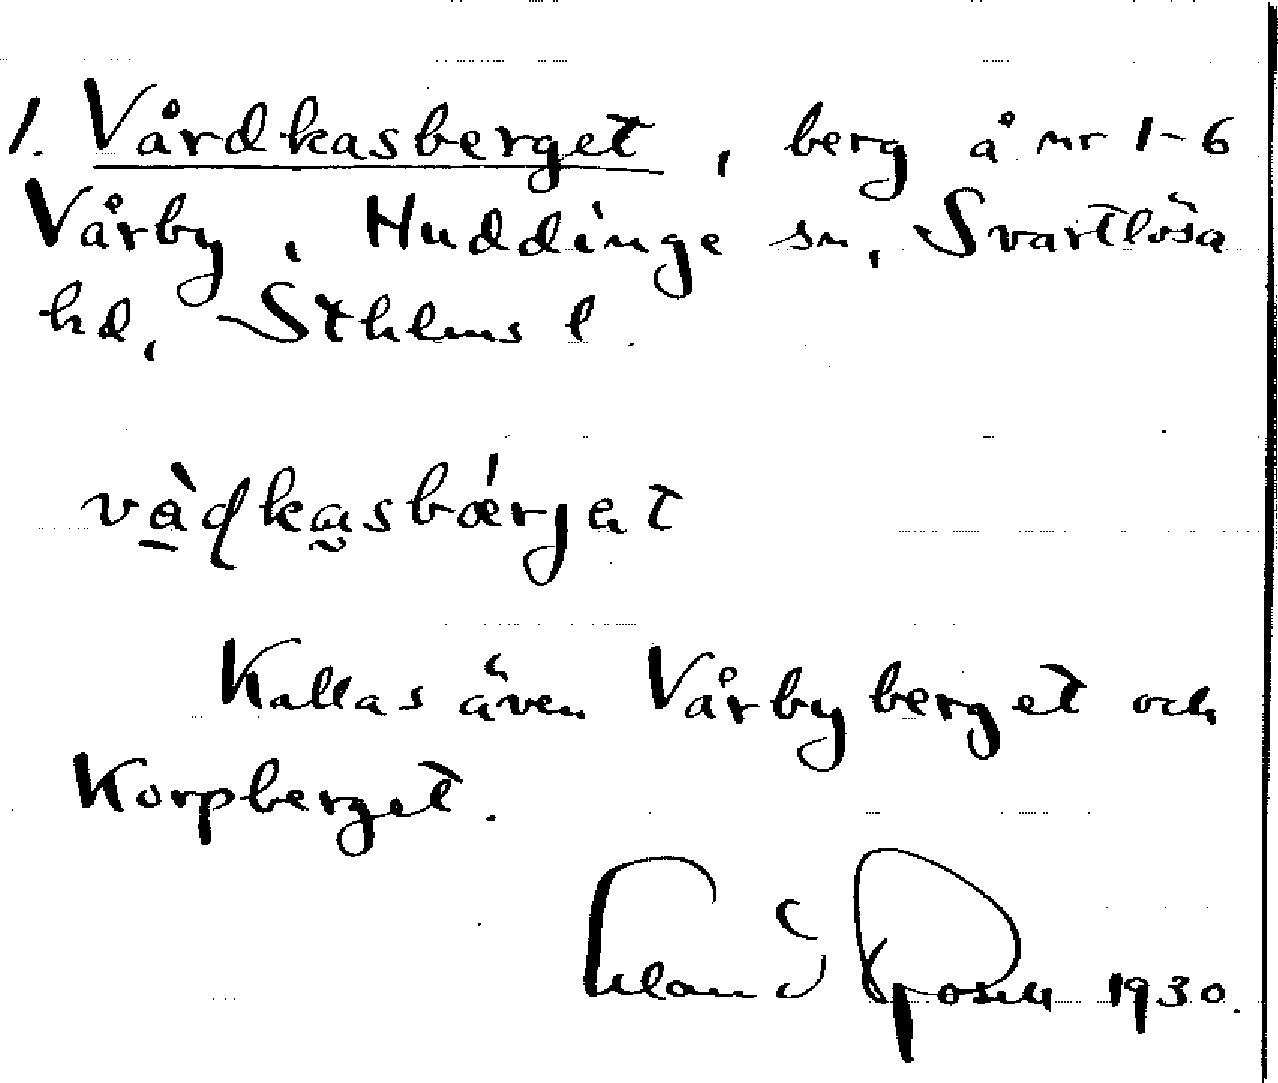 1. Vårdkasberget, berg å nr 1-6
Vårby, Huddinge sn, Svartlösa
hd, Sthlms l.
vàḍkasbǽrjət
Kallas även Vårbyberget och
Korpberget.
1930.